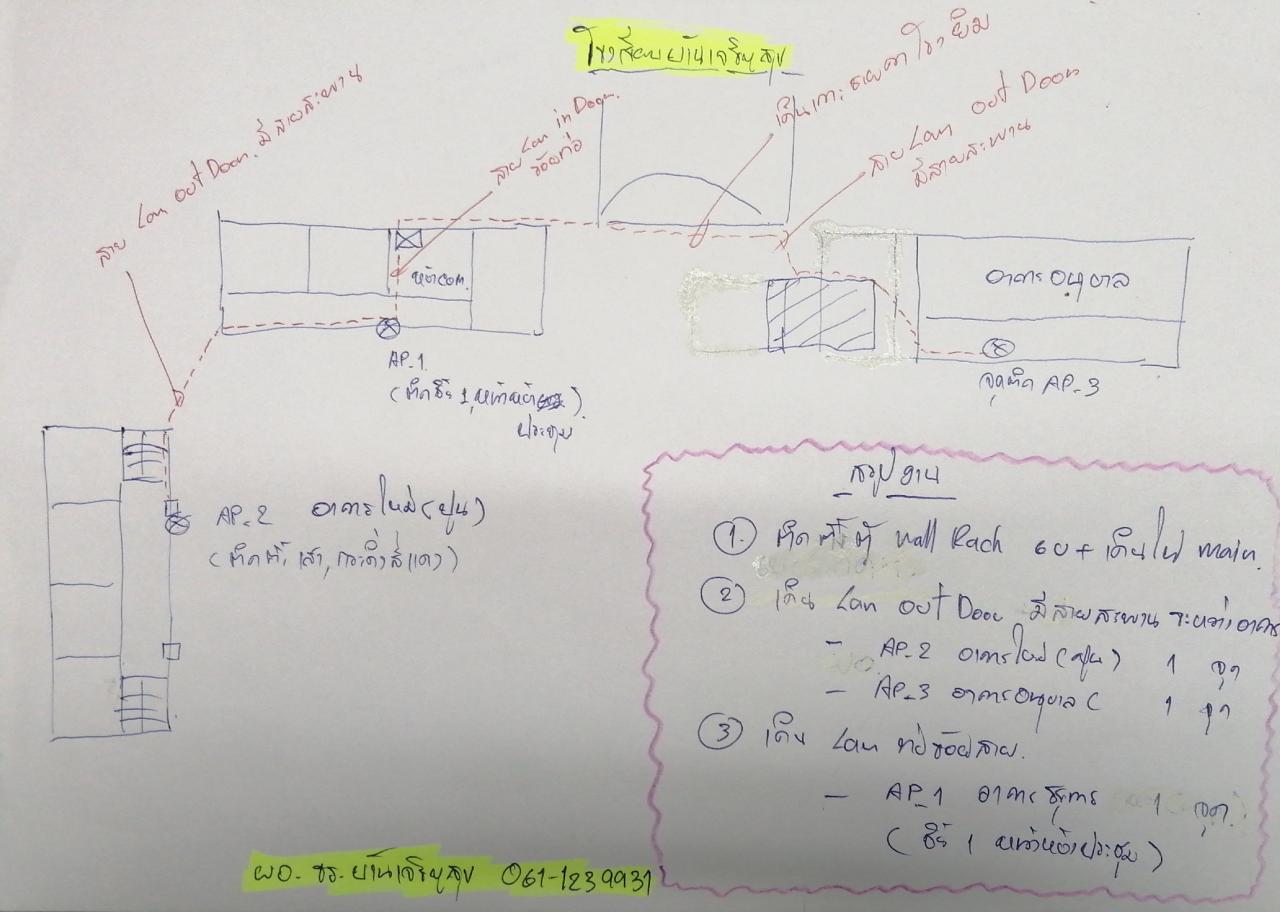 โรงเรียนบ้านเจริญสุข
สาย Lan out Door มีสายสะพาน
สาย Lan in Door
ร้อยท่อ
เดินเกาะชายคาโรงยิม
สาย Lan out Door
มีสายสะพาน
ห้องcom.
อาคารอนุบาล
AP_1
(ติดชั้น 1, หน้าห้อง
ประชุม)
จุดติด AP_3
AP_2 อาคารใหม่(ปูน)
(ติดที่ เสา, กระดิ่งสีแดง)
สรุปงาน
1. ติดตั้งตู้ wall Rack 6U + เดินไฟ main.
2 เดิน Lan out Door มีสายสะพาน ระหว่างอาคาร
- AP_2 อาคารใหม่(ปูน) 1 จุด
- AP_3 อาคารอนุบาล ( 1 จุด
3 เดิน Lan ท่อร้อยสาย.
- AP_1 อาคารธุรการ 1 จุด.
(ชั้น 1 หน้าห้องประชุม)
ผอ. รร. บ้านเจริญสุข 061-1239931